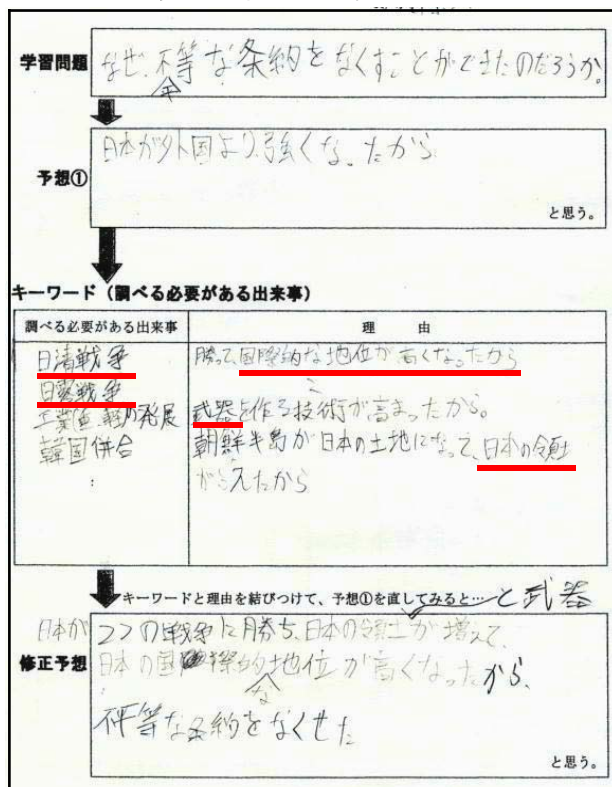 学習問題
なぜ、不平等な条約をなくすことができたのだろうか。
予想①
日本が外国より強くなったから
と思う。
キーワード（調べる必要がある出来事）
調べる必要がある出来事 理由
日清戦争 勝って国際的な地位が高くなったから
日露戦争
工業 の発展 武器を作る技術が高まったから。
韓国併合 朝鮮半島が日本の土地になって、日本の領土
がふえたから
キーワードと理由を結びつけて、予想①を直してみると… と武器
修正予想
日本が2つの戦争に勝ち、日本の領土が増えて、
日本の国際的な地位が高くなったから、
不平等な条約をなくせた
と思う。